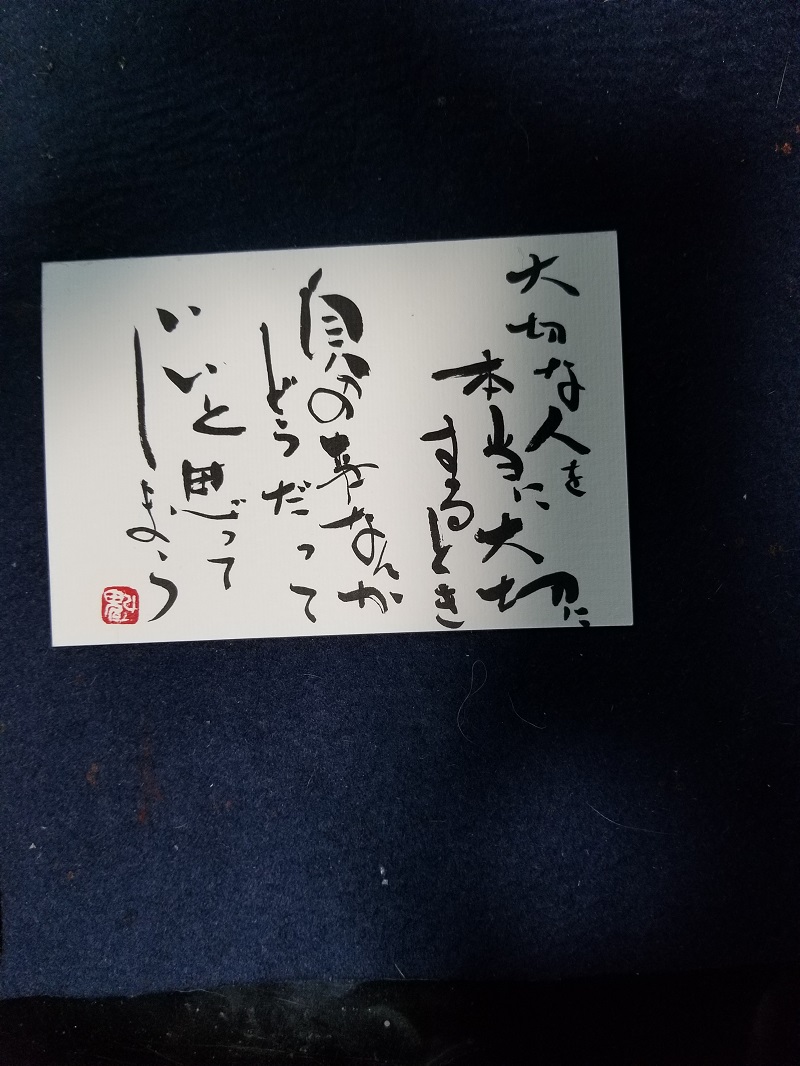 大切な人を
本当に大切に
するとき
自分の事なんか
どうだって
いいと思って
しまう